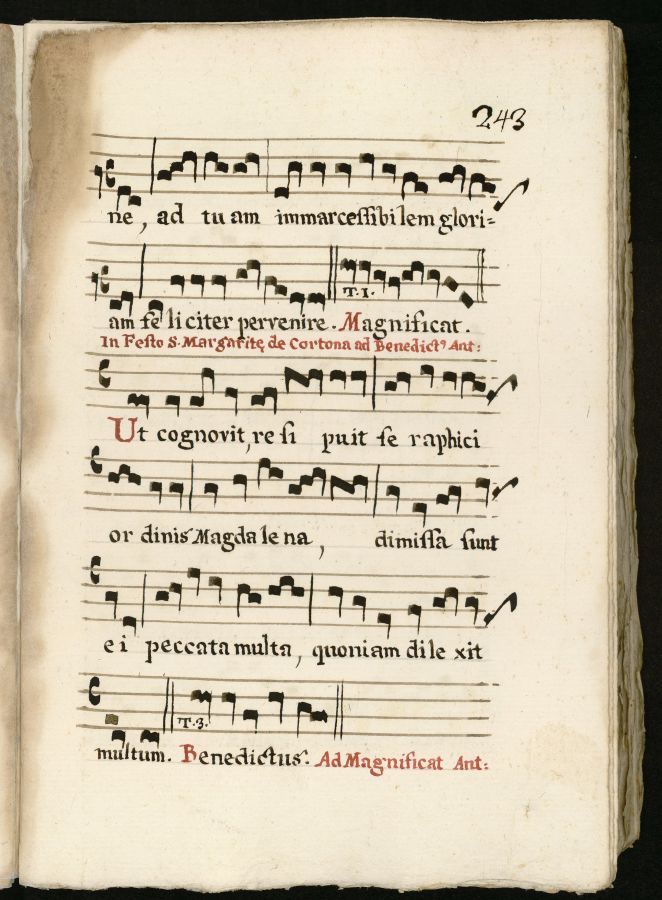 243
ne, ad tuam immarceſſibilem glori=
T.1.
am fe liciter pervenire. Magnificat.
In Feſto S. Margaritę de Cortona ad Benedictꝰ Ant:
Ut cognovit, re ſi puit ſe raphici
or dinis Magda le na, dimiſſa ſunt
e i peccata multa, quoniam di le xit
T.3.
multum. Benedictus. Ad Magnificat Ant: